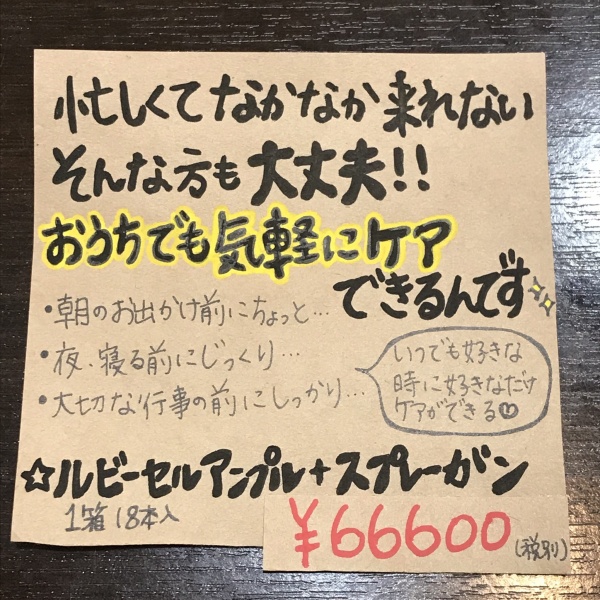 忙しくてなかなか来れない
そんな方も大丈夫!!
おうちでも気軽にケア
できるんです
・朝のお出かけ前にちょっと…
・夜、寝る前にじっくり…
・大切な行事の前にしっかり…
いつでも好きな
時に好きなだけ
ケアができる♡
☆ルビーセルアンプル+スプレーガン
1箱 18本入
¥66600(税別)